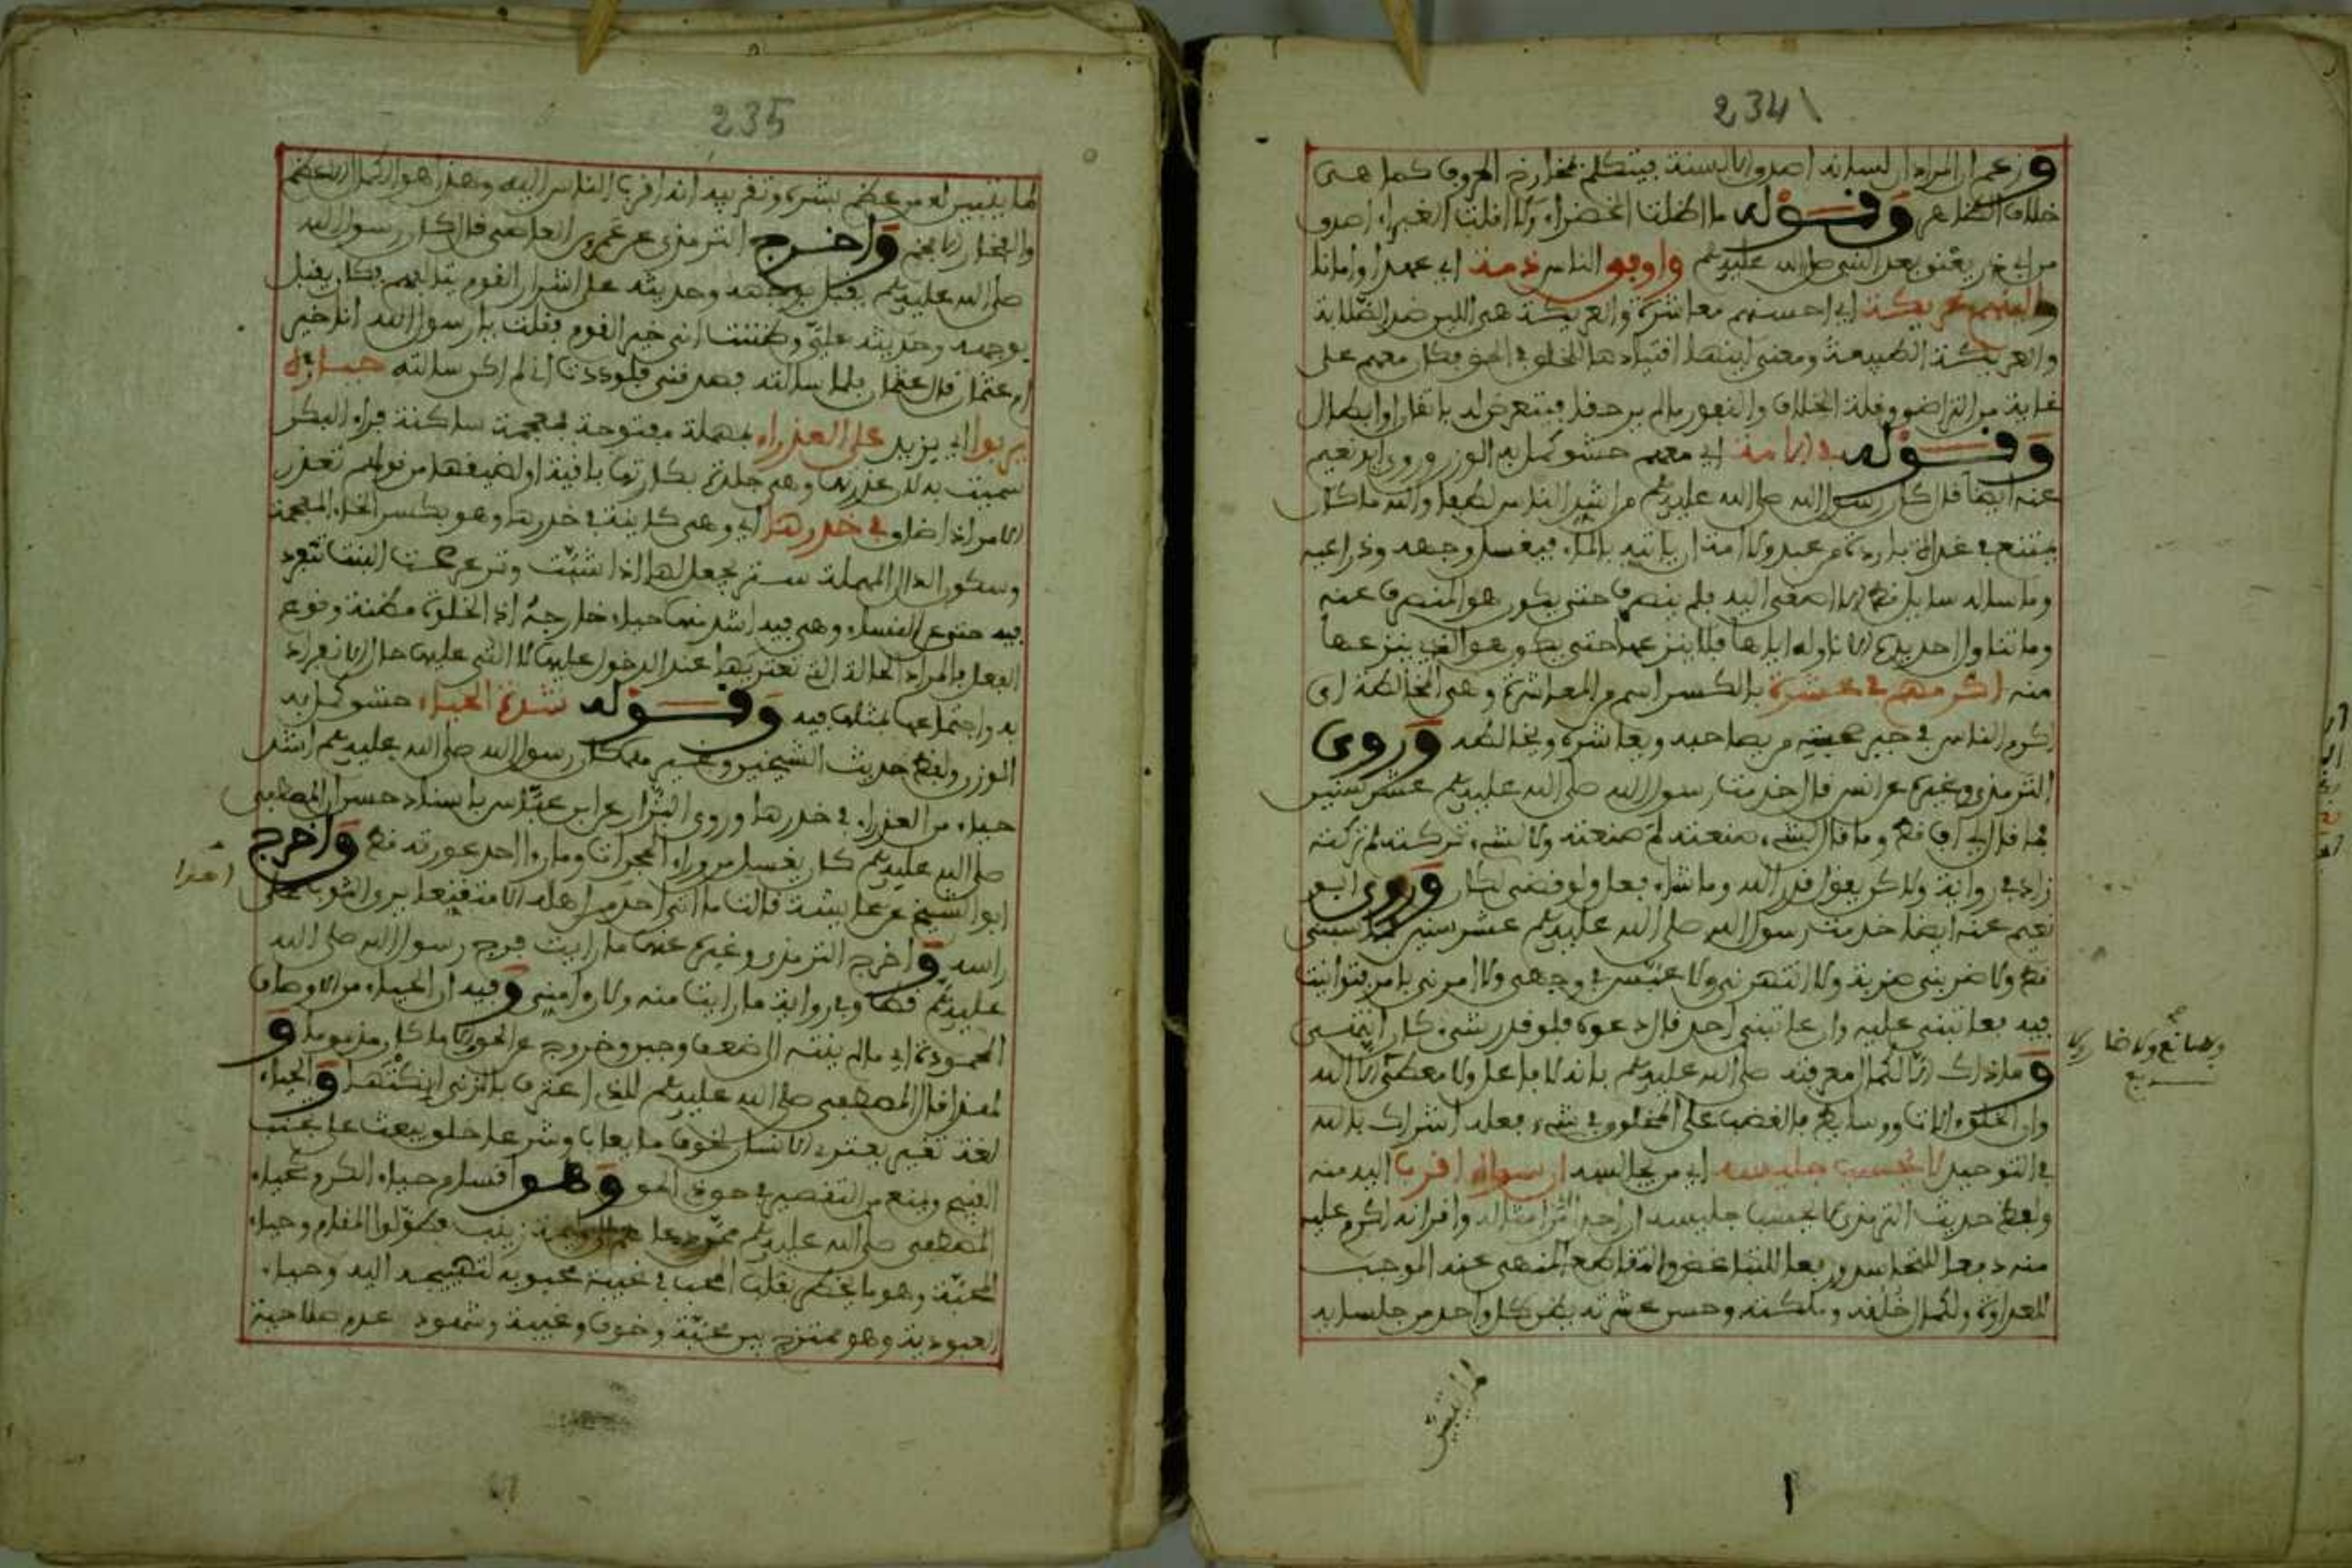 234
وزعم ان المراد ان لسانه اصدق الالسنة فيتكلم بمخارج الحروف كما هى
خلاف الظاهر وقوله ما اظلت الخضراء ولا اقلت الغبراء اصدق
من ابي ذر يعنو بعد النبي صلى الله عليه وسلم واوفى الناس ذمة اي عهدا وامانا
والينهم عريكة اي احسنهم معاشرة والعريكة هى اللين ضد الصلابة
والعريكة الطبيعة ومعنى لينها انقيادها للخلق في الحق فكان معهم على
غاية من التواضع وقلة الخلاف والنفور مالم ير حقا فيتعرض له بانقاذ او ابطال
وقوله اي معهم حشو كمل به الوزن وروى ابو نعيم
عنه ايضا قال كان رسول الله صلى الله عليه وسلم من اشد الناس لطفا والله ما كان
يمتنع في غداة باردة من عبد ولا امة ان ياتيه بالماء فيغسل وجهه وذراعيه
وما ساله سايل قط الا اصغى اليه فلم ينصرف حتى يكون هو المنصرف عنه
وما تناول احد يده الا ناوله اياها فلا ينزعها حتى يكون هو الذي ينزعها
منه اكرمهم في عشرة بالكسر اسم من المعاشرة وهى المخالطة اى
اكرم الناس في حق من يصاحبه ويعاشره ويخالطه وروى
الترمذي وغيره عن انس قال خدمت رسول الله صلى الله عليه وسلم عشر سنين
فما قال لي اف قط وما قال لشىء صنعته لم صنعته ولا لشىء تركته لم تركته
زاد في رواية ولاكن يقول قدر الله وما شاء فعل ولو قضى لكان وروى ابو
نعيم عنه ايضا خدمت رسول الله صلى الله عليه وسلم عشر سنين فما سبنى
قط ولا ضربنى ضربة ولا انتهرنى ولا عبس في وجهى ولا امرنى بامر فتوانيت
فيه فعاتبنى عليه وان عاتبنى احد قال دعوه فلو قدر شىء كان
وما ذاك الا لكمال معرفته صلى الله عليه وسلم بانه لا فاعل ولا معطى الا الله
وان الخلق آلات ووسايط فالغضب على المخلوق في شىء فعله اشراك بالله
في التوحيد لا يحسب جليسه اي من يجالسه ان سواه اقرب اليه منه
ولفظ حديث الترمذي لا يحسب جليسه ان احدا من امثاله واقرانه اكرم عليه
منه دفعا للتحاسد ورفعا للتباغض والتقاطع المنهى عنه الموجب
للعداوة ولكمال خلقه وملكته وحسن عشرته يظن كل واحد من جلسايه
لما يتبين
ولا مانع ولا ضار الا
235
لما يتبين له من عظم بشره وتقريبه انه اقرب الناس اليه وهذا هو الكمال الاعظم
والفخار الافخم واخرج الترمذي عن عمرو بن العاصى قال كان رسول الله
صلى الله عليه وسلم يقبل بوجهه وحديثه على اشرار القوم يتالفهم فكان يقبل
بوجهه وحديثه علي وظننت انى خير القوم فقلت يا رسول الله انا خير
ام عثمان قال عثمان فلما سالته فصدقنى فلوددت انى لم اكن سالته حياؤه
يربوا اي يزيد على العذراء بمهملة مفتوحة فمعجمة ساكنة فراء البكر
سميت به لان عذرتها وهى جلدة بكارتها باقية او لضيقها من قولهم تعذر
الامر اذا ضاق في خدرها اي وهى كاينة في خدرها وهو بكسر الخاء المعجمة
وسكون الدال المهملة ستر يجعل لها اذا شبت وترعرعت البنت تنفرد
فيه حتى عن النساء وهى فيه اشد منها حياء خارجه اذ الخلوة مظنة وقوع
الفعل فالمراد الحالة التى تعتريها عند الدخول عليها لا التى عليها حال الانفراد
به واجتماعها بمثلها فيه وقوله شدة الحياء حشو كمل به
الوزن ولفظ حديث الشيخين وغيرهما كان رسول الله صلى الله عليه وسلم اشد
حياء من العذراء في خدرها وروى البزار عن ابن عباس باسناد حسن ان المصطفى
صلى الله عليه وسلم كان يغتسل من وراء الحجرات وما راى احد عورته قط واخرج
ابو الشيخ عن عايشة قالت ما اتى احدا من اهله الا متقنعا يرخى الثوب على
راسه واخرج الترمذي وغيره عنها ما رايت فرج رسول الله صلى الله
عليه وسلم قط وفي رواية ما رايت منه ولا راى منى وفيه ان الحياء من الاوصاف
المحمودة اي مالم ينته الى ضعف وجبن وخروج عن الحق والا كان مذموما و
لهذا قال المصطفى صلى الله عليه وسلم للذي اعترف بالزنى انكتها والحياء
لغة تغير يعترى الانسان لخوف ما يعاب وشرعا خلق يبعث على تجنب
القبيح ويمنع من التقصير في حق ذى الحق وهو اقسام حياء الكرم كحياء
المصطفى صلى الله عليه وسلم ممن دعا الى وليمة زينب فطولوا المقام وحياء
المحبة وهو ما يخطر بقلب المحب في غيبة محبوبه لتهييجه اليه وحياء
العبودية وهو ممتزج بين محبة وخوف وغيبة وشهود عدم صلاحية